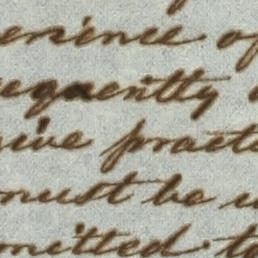 erience of
equently
give practi
must be
mitted to